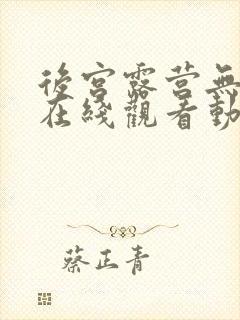 後宮露营無
在綫觀看動
蔡正青